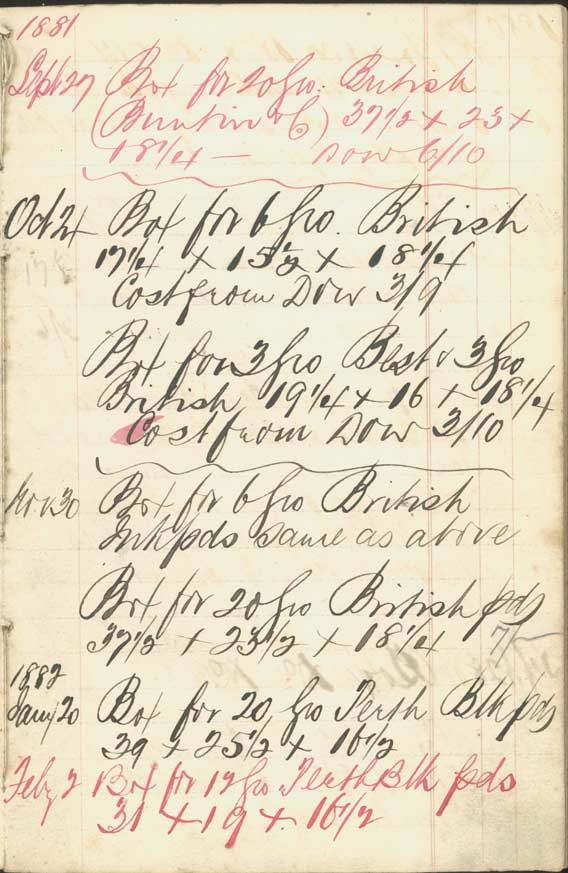 1881
Sept 27 Box for 20 Gro. British
(Buntin & Co) 37 1/2 x 23 x
18 1/4 — Dow 6/10
Oct 24 Box for 6 Gro. British
17 1/4 x 15 1/2 x 18 1/4
Cost from Dow 3/9
Box for 3 Gro Best & 3 Gro
British 19 1/4 x 16 x 18 1/4
Cost from Dow 3/10
Nov 30 Box for 6 Gro British
Inkpds same as above
Box for 20 Gro British pds
37 1/2 x 23 1/2 x 18 1/4 7/
1882
Jany 20 Box for 20 Gro Perth Blk pds
39 x 25 1/2 x 16 1/2
Feby 2 Box for 12 Gro Perth Blk pds
31 x 19 x 16 1/2